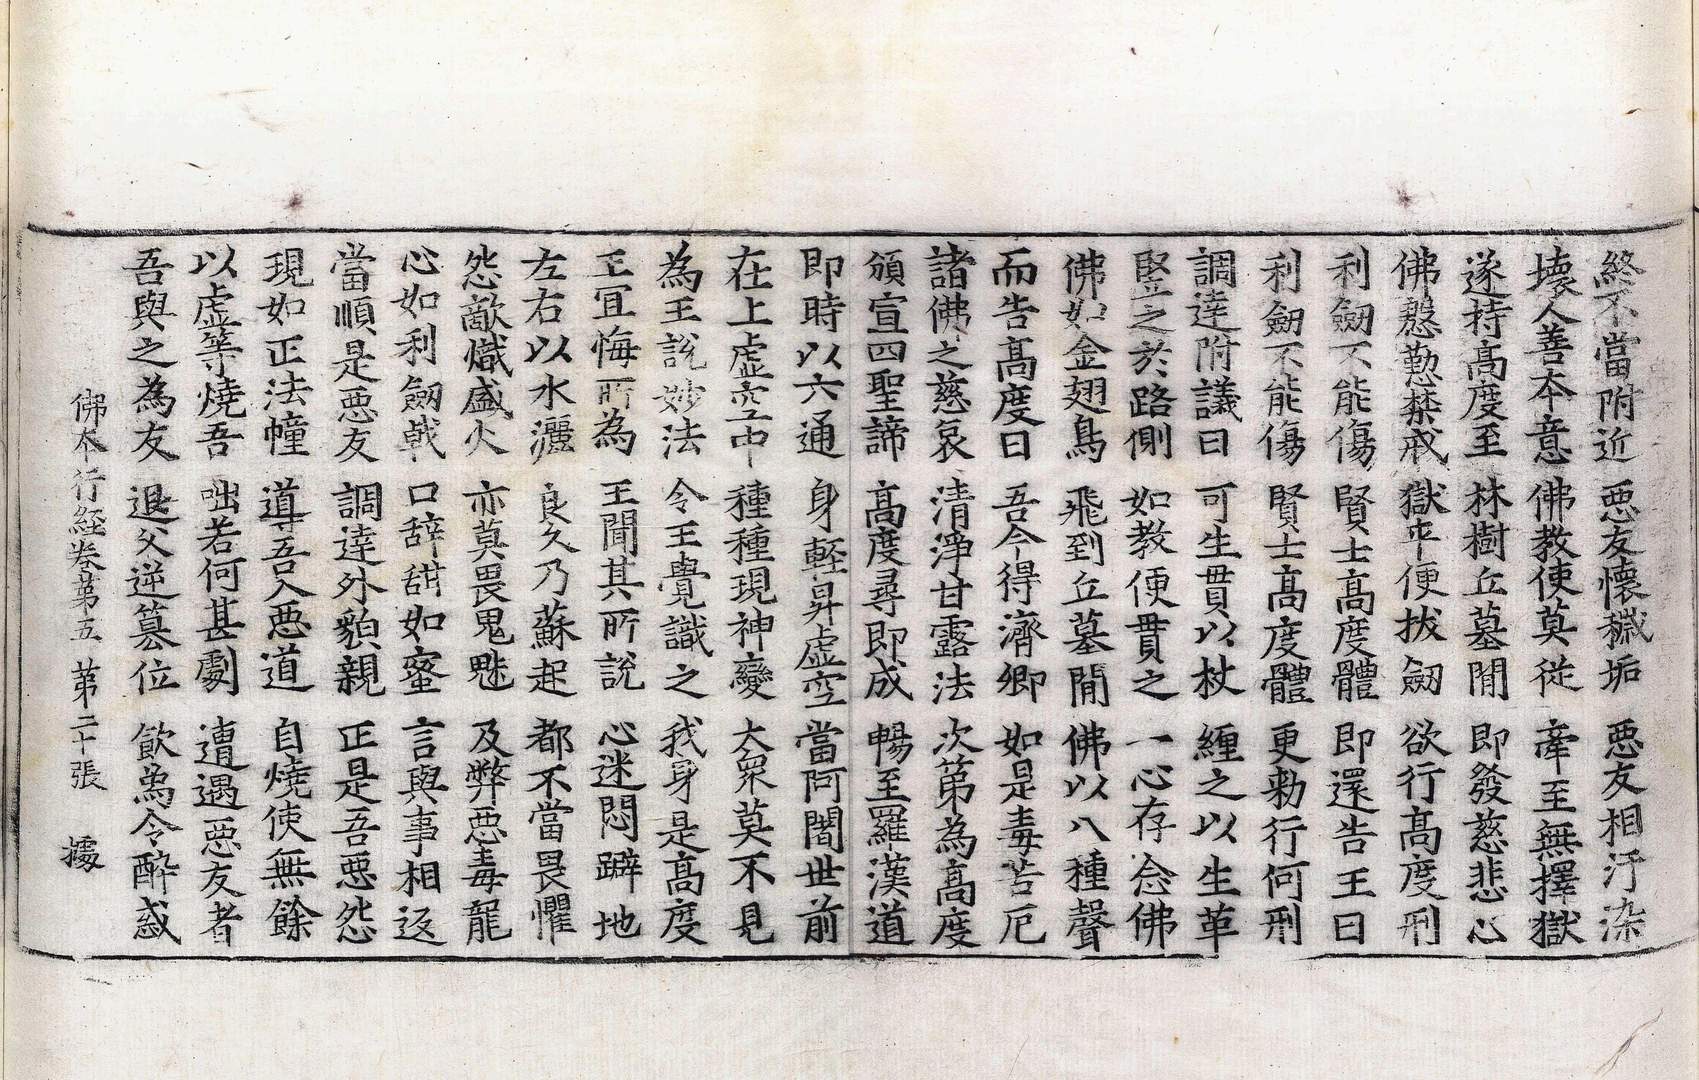 終不當附近　惡友懷穢垢　惡友相汙染
壞人善本意　佛教使莫從　牽至無擇獄
遂持高度至　林樹丘墓閒　即發慈悲心
佛慇懃禁戒　獄卒便拔劒　欲行高度刑
利劒不能傷　賢士高度體　即還告王曰
利劒不能傷　賢士高度體　更勅行何刑
調達附議曰　可生貫以杖　纏之以生革
竪之於路側　如教便貫之　一心存念佛
佛如金翅鳥　飛到丘墓閒　佛以八種聲
而告高度曰　吾今得濟卿　如是毒苦厄
諸佛之慈哀　清淨甘露法　次第為高度
頒宣四聖諦　高度尋即成　暢至羅漢道
即時以六通　身輕昇虛空　當阿闍世前
在上虛空中　種種現神變　大衆莫不見
為王說妙法　令王覺識之　我身是高度
王宜悔所為　王聞其所說　心迷悶躃地
左右以水灑　良久乃蘇起　都不當畏懼
怨敵熾盛火　亦莫畏鬼魅　及弊惡毒龍
心如利劒戟　口辭甜如蜜　言與事相返
當順是惡友　調達外貌親　正是吾惡怨
現如正法幢　導吾入惡道　自燒使無餘
以虛等燒吾　咄若何甚劇　遭遇惡友者
吾與之為友　退父逆篡位　飲爲令醉惑
佛本行經卷第五　第二十張　㩀